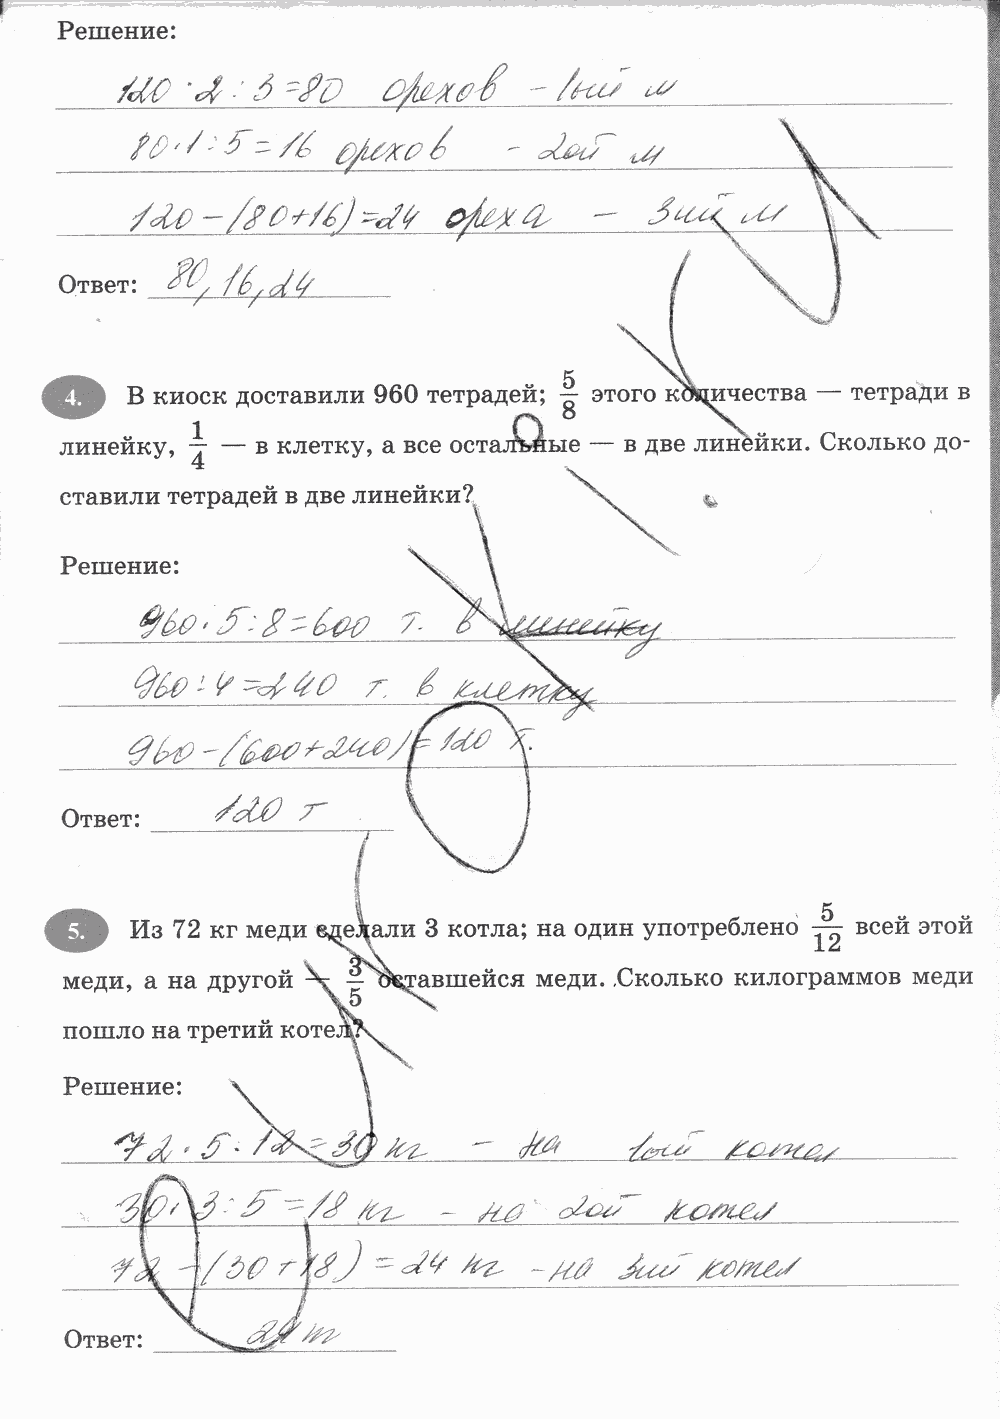 Решение:
120·2:3=80 орехов - 1ый м
80·1:5=16 орехов - 2ой м
120-(80+16)=24 ореха - 3ий м
Ответ: 80, 16, 24
4. В киоск доставили 960 тетрадей; 5/8 этого количества — тетради в
линейку, 1/4 — в клетку, а все остальные — в две линейки. Сколько до-
ставили тетрадей в две линейки?
Решение:
960·5:8=600 т. в линейку
960:4=240 т. в клетку
960-(600+240)=120 т.
Ответ: 120 т
5. Из 72 кг меди сделали 3 котла; на один употреблено 5/12 всей этой
меди, а на другой — 3/5 оставшейся меди. Сколько килограммов меди
пошло на третий котел?
Решение:
72·5:12=30 кг - на 1ый котел
30·3:5=18 кг - на 2ой котел
72-(30+18)=24 кг - на 3ий котел
Ответ: 24